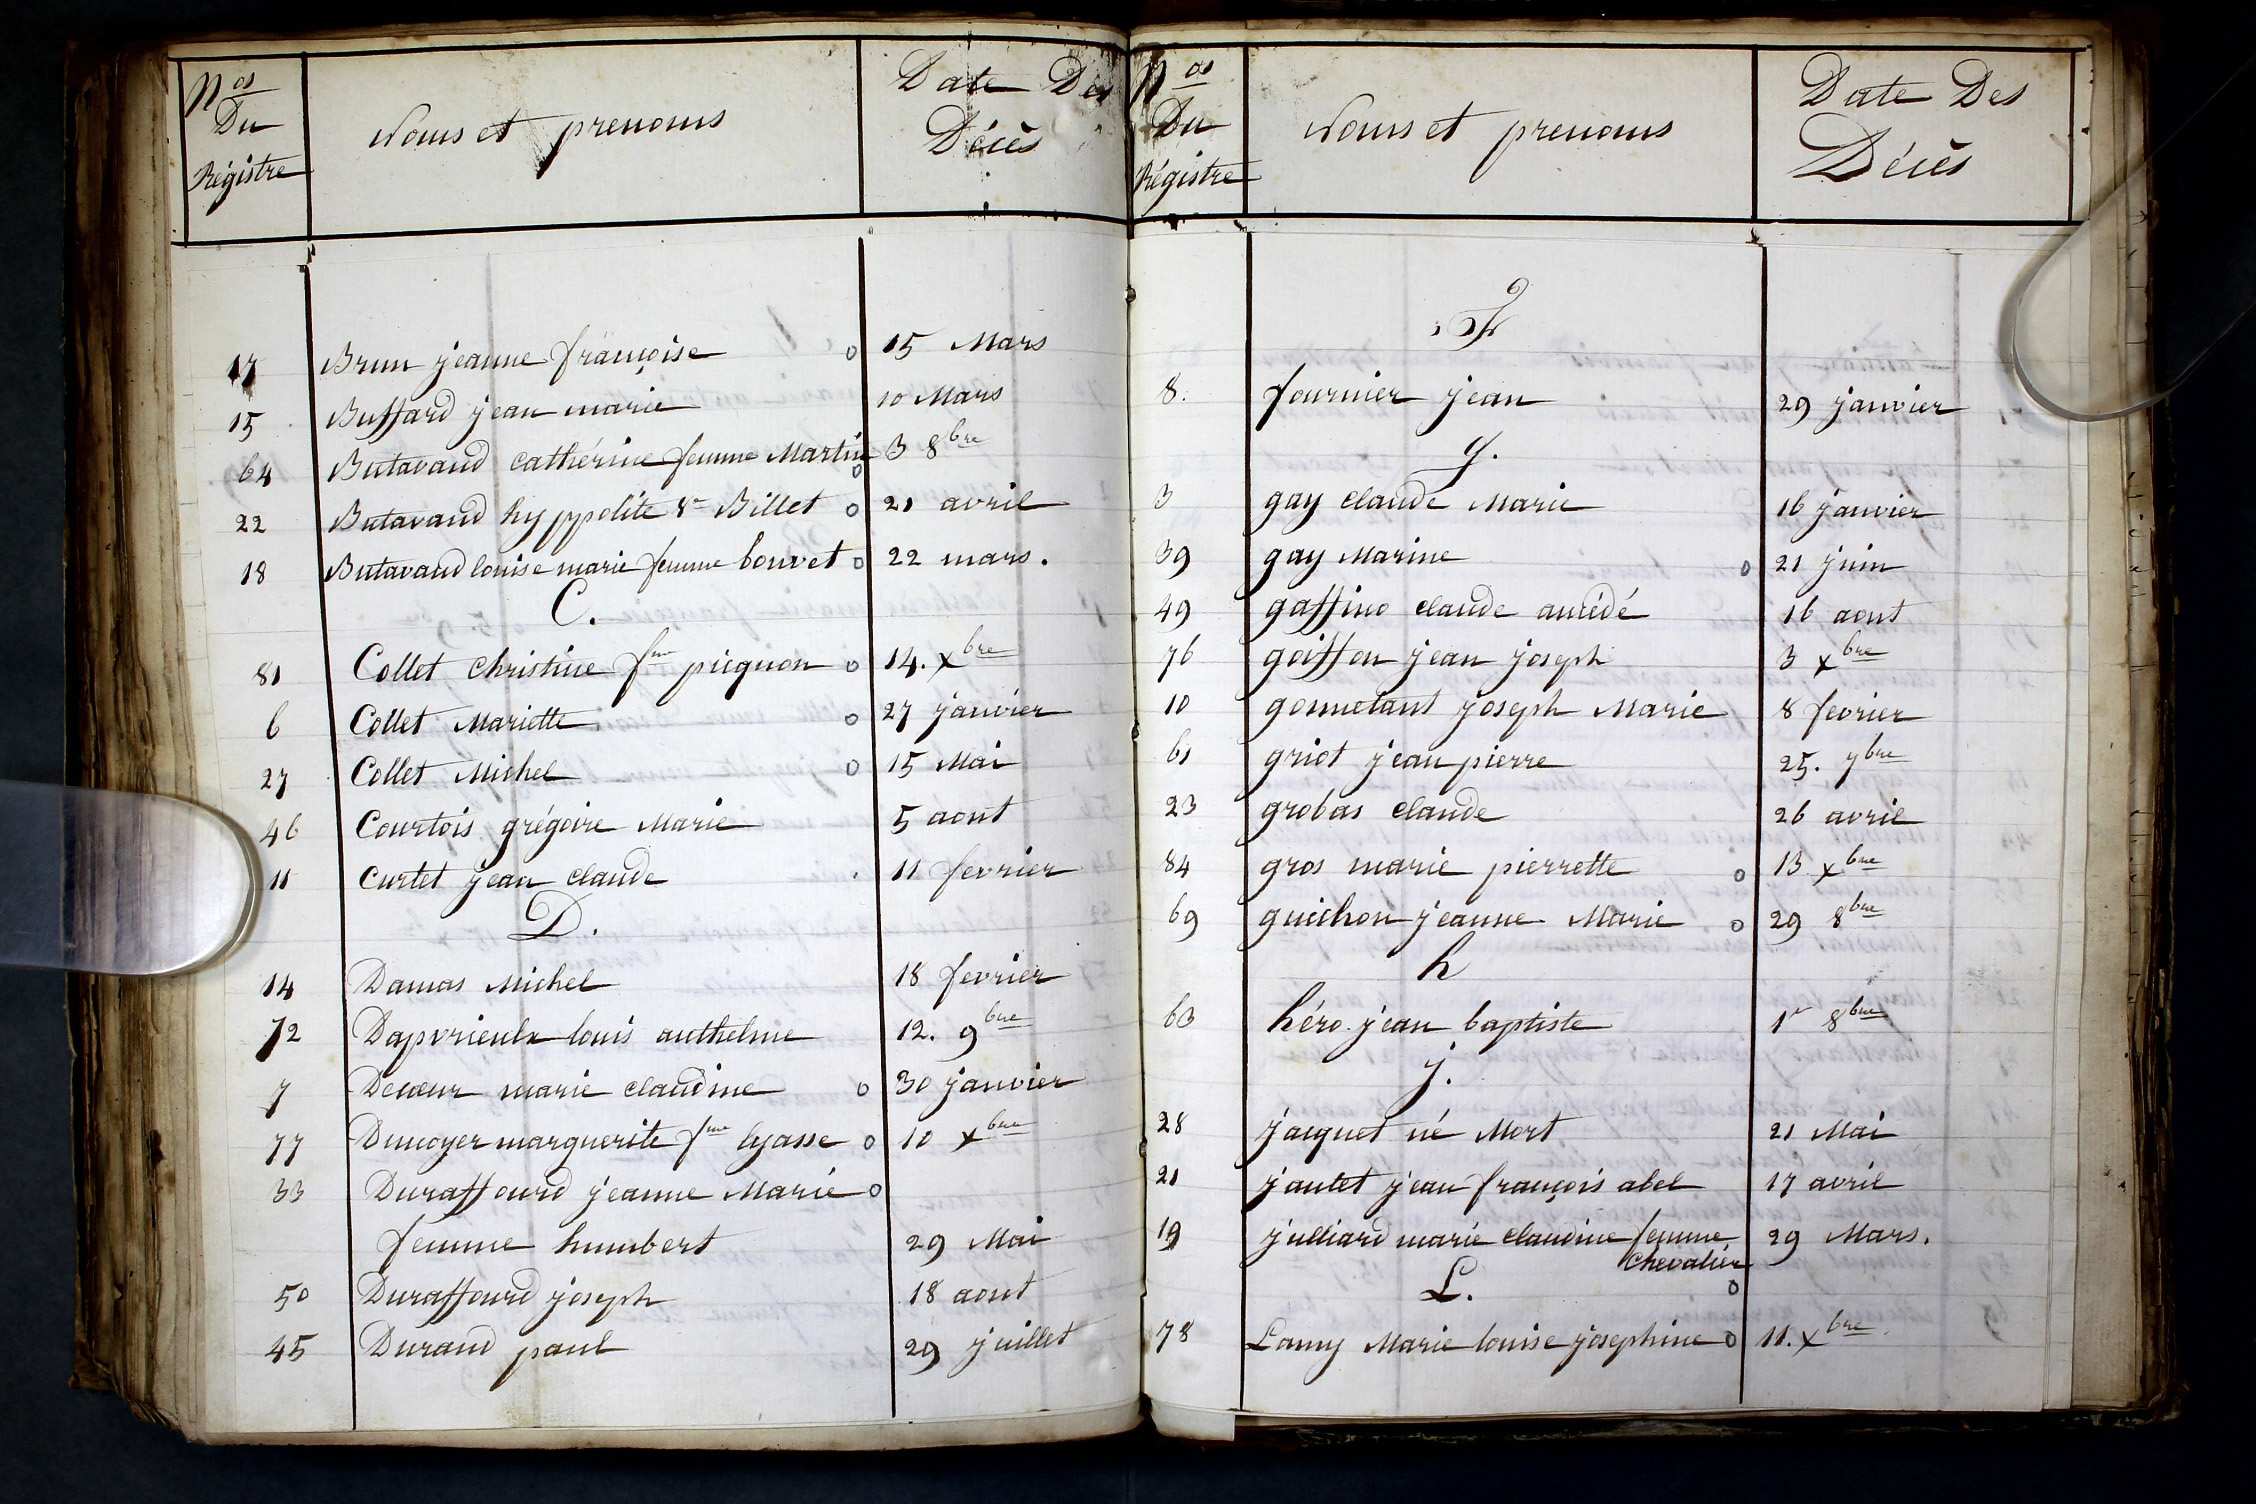 Nos Du Régistre
Noms et prenoms
Date Des Décès
17 Brun jeanne françoise o 15 Mars
15 Buffard jean marie 10 Mars
64 Butavand cathérine femme Martin o 3 8bre
22 Butavand hyppolite Billet o 21 avril
18 Butavand louise marie femme bouvet o 22 mars.
C.
81 Collet christine fme picquon o 14. xbre
6 Collet Mariette o 27 janvier
27 Collet Michel o 15 Mai
46 Courtois grégoire Marie 5 aout
11 Curtet jean claude 11 fevrier
D.
14 Damas Michel 18 fevrier
72 Dapvrieulx louis anthelme 12. 9bre
7 Decœur marie claudine o 30 janvier
77 Dunoyer marguerite fme lyasse o 10 xbre
33 Duraffourd jeanne Marie o
femme humbert 29 Mai
50 Duraffourd joseph 18 aout
45 Durand paul 29 juillet
Nos Du Régistre
Noms et prenoms
Date Des Décès
F
8. fournier jean 29 janvier
g.
3 gay claude Marie 16 janvier
39 gay Marine o 21 juin
49 gaffino claude amédé 16 aout
76 goiffon jean joseph 3 xbre
10 gonnetant joseph Marie 8 fevrier
61 griot jean pierre 25. 7bre
23 grobas claude 26 avril
84 gros marie pierrette o 13 xbre
69 guichon jeanne Marie o 29 8bre
h
63 héro jean baptiste 1er 8bre
j.
28 jacquet né Mort 21 Mai
21 jantet jean françois abel 17 avril
19 julliard marie claudine femme 29 Mars.
chevalier
L. o
78 Lamy Marie louise josephine o 11. xbre